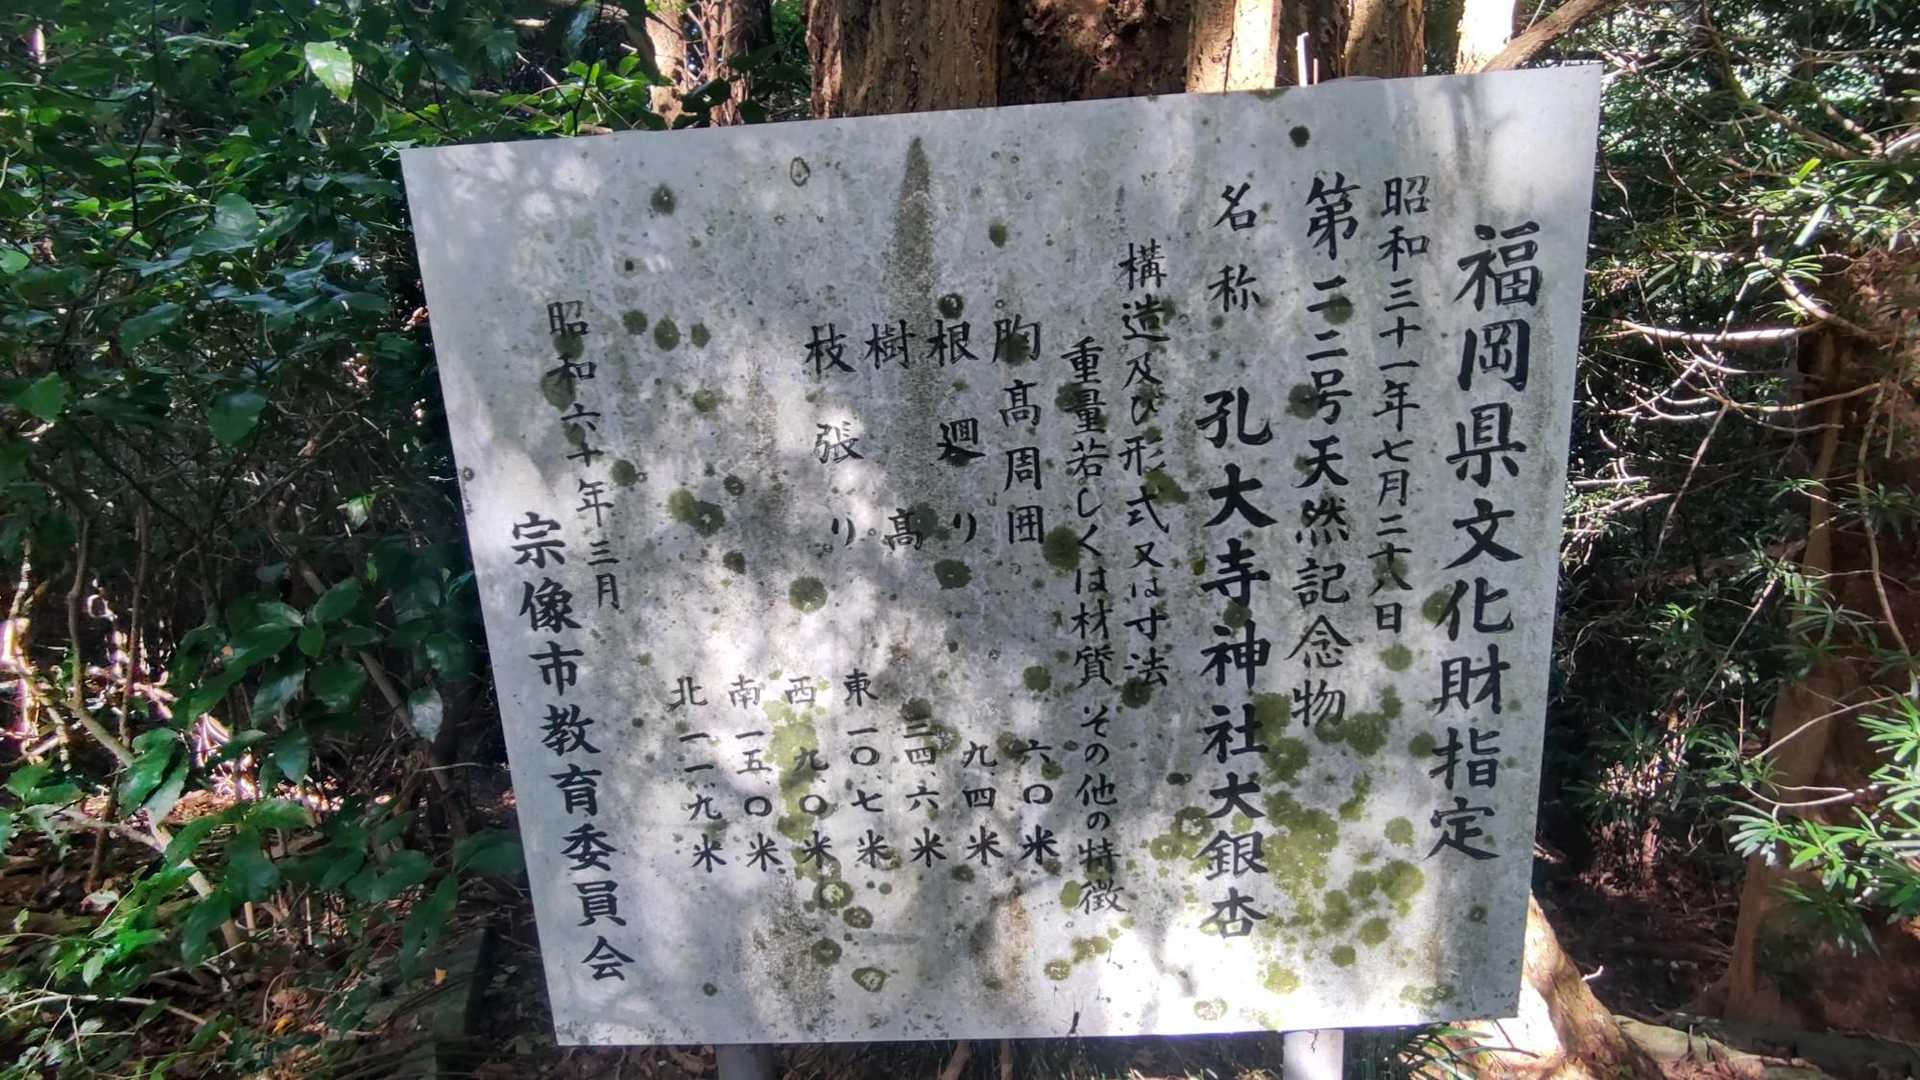 福岡県文化財指定
昭和三十一年七月二十八日
第二二号天然記念物
名称 孔大寺神社大銀杏
構造及び形式又は寸法
重量若しくは材質その他の特徴
胸高周囲 六.〇米
根廻り 九.四米
樹高 三四.六米
枝張り 東一〇.七米
西 九.〇米
南一五.〇米
北一一.九米
昭和六十年三月
宗像市教育委員会